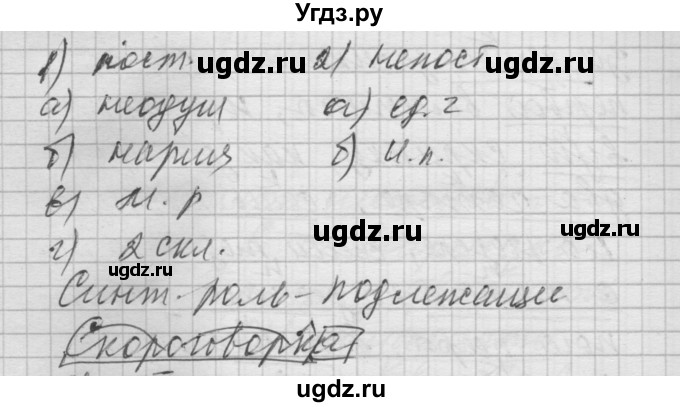 Угдз.ру
1) пост. ugdz.ru 2) непост ugdz.ru
а) неодуш а) ед. г
б) нариц б) И.п.
в) м. р
ugdz.ru
г) 2 скл.
ugdz.ru
Синт-роль-подлежащие
Скороговорка
ugdz.ru